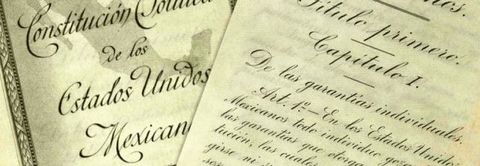 Constitución Política
de los
Estados Unidos
Mexican
nos.
Título primero.
Capítulo I.
De las garantías individuales.
Art. 1º— En los Estados Unido
Mexicanos todo individuo goza
las garantías que otorga
lución, las cuales
girse ni